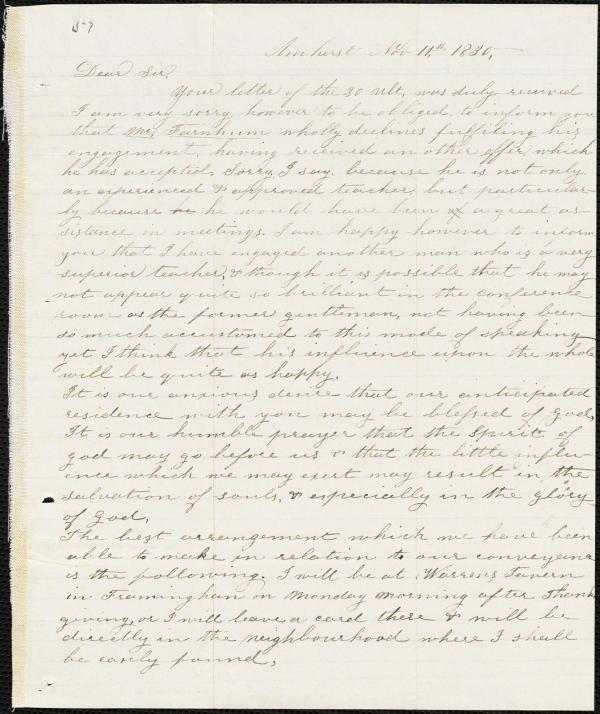 57
Amherst Nov 11,th 1830,
Dear Sir,
Your letter of the 30 ult, was duly received
I am very sorry however to be obliged, to inform you
that Mr. Farnhum wholly declines fulfiling his
engagement, having received an other offer, which
he has accepted, Sorry, I say, because he is not only
an experienced & approved teacher but particular-
ly because he he would have been of a great as-
sistance in meetings. I am happy however to inform
you that I have engaged another man who is a very
superior teacher, & though it is possible that he may
not appear quite so brilliant in the conference
room as the former gentleman, not having been
so much accustomed to this mode of speaking
yet, I think that his influence upon the whole
will be quite as happy.
It is our anxious desire that our anticipated
residence with you may be blessed of god,
It is our humble prayer that the Spirit of
god may go before us & that the little influ-
ence which we may exert may result in the
salvation of souls, & especially in the glory
of God,
The best arrangement which we have been
able to make in relation to our conveyance
is the following, I will be at Warrens Tavern
in Framingham on Monday morning after Thanks
giving, or I will leave a card there & will be
directly in the neighbourhood where I shall
be easily found,